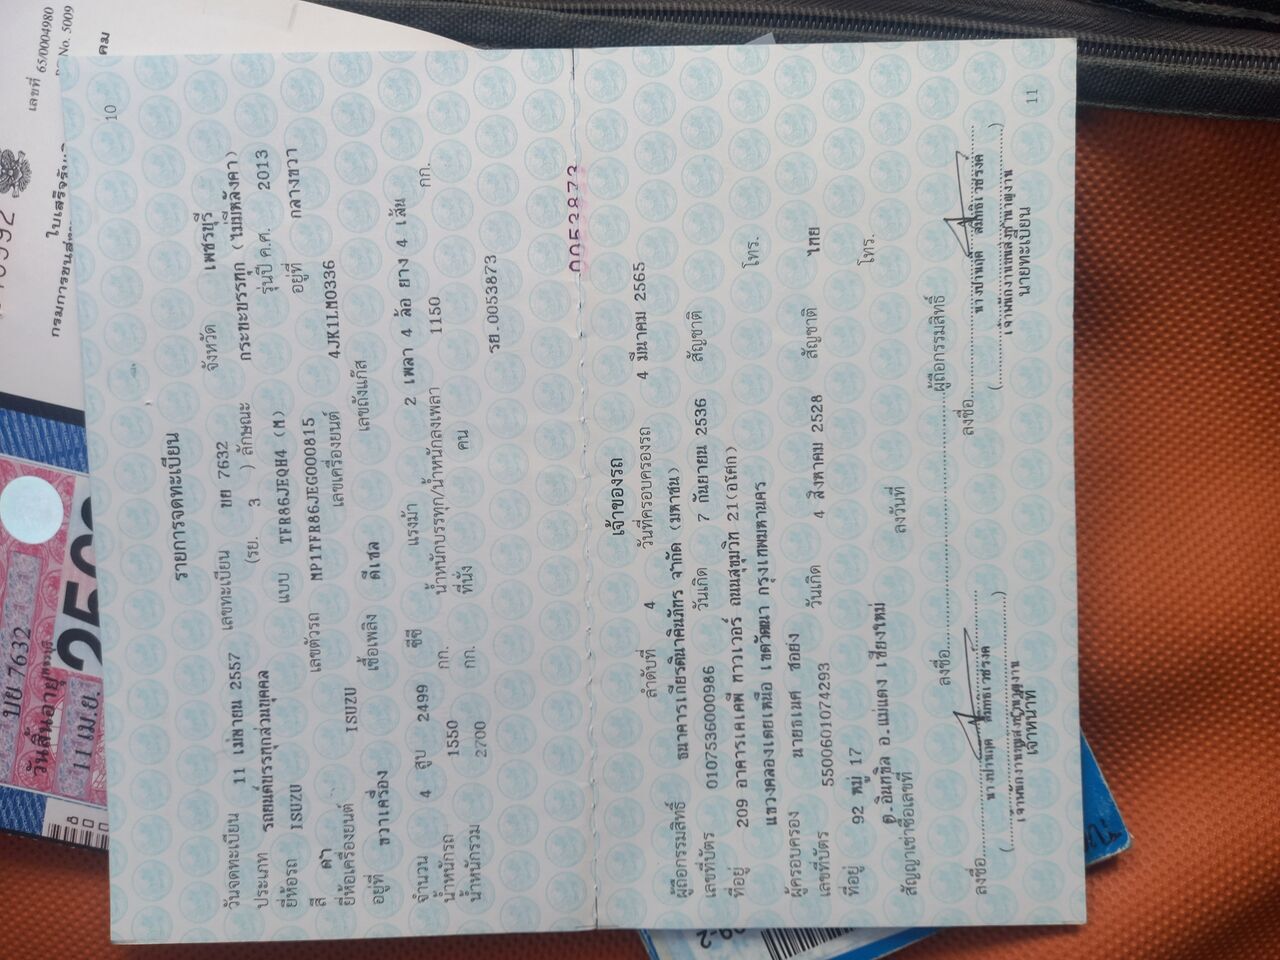 10
รายการจดทะเบียน
วันจดทะเบียน 11 เมษายน 2557 เลขทะเบียน ขย 7632 จังหวัด เพชรบุรี
ประเภท รถยนต์บรรทุกส่วนบุคคล (รย. 3 ) ลักษณะ กระบะบรรทุก (ไม่มีหลังคา)
ยี่ห้อรถ ISUZU แบบ TFR86JEQH4 (M) รุ่นปี ค.ศ. 2013
สี ดำ เลขตัวรถ MP1TFR86JEG000815 อยู่ที่ กลางขวา
ยี่ห้อเครื่องยนต์ ISUZU เลขเครื่องยนต์ 4JK1LM0336
อยู่ที่ ขวาเครื่อง เชื้อเพลิง ดีเซล เลขถังแก๊ส
จำนวน 4 สูบ 2499 ซีซี แรงม้า 2 เพลา 4 ล้อ ยาง 4 เส้น
น้ำหนักรถ 1550 กก. น้ำหนักบรรทุก/น้ำหนักลงเพลา 1150 กก.
น้ำหนักรวม 2700 กก. ที่นั่ง คน
รย.0053873
0053873
เจ้าของรถ
ลำดับที่ 4 วันที่ครอบครองรถ 4 มีนาคม 2565
ผู้ถือกรรมสิทธิ์ ธนาคารเกียรตินาคินภัทร จำกัด (มหาชน)
เลขที่บัตร 0107536000986 วันเกิด 7 กันยายน 2536 สัญชาติ
ที่อยู่ 209 อาคารเคเคพี ทาวเวอร์ ถนนสุขุมวิท 21(อโศก) โทร.
แขวงคลองเตยเหนือ เขตวัฒนา กรุงเทพมหานคร
ผู้ครอบครอง นายธเนศ ซอย่ง
เลขที่บัตร 5500601074293 วันเกิด 4 สิงหาคม 2528 สัญชาติ ไทย
ที่อยู่ 92 หมู่ 17 โทร.
ต.อินทขิล อ.แม่แตง เชียงใหม่
สัญญาเช่าซื้อเลขที่ ลงวันที่
ลงชื่อ ผู้ถือกรรมสิทธิ์
ลงชื่อ ลงชื่อ
เจ้าหน้าที่ นายทะเบียน
11
เลขที่ 65/0004980
No. 5009
กรมการขนส่ง
7632
วันสิ้นอายุ
11 เม.ย.